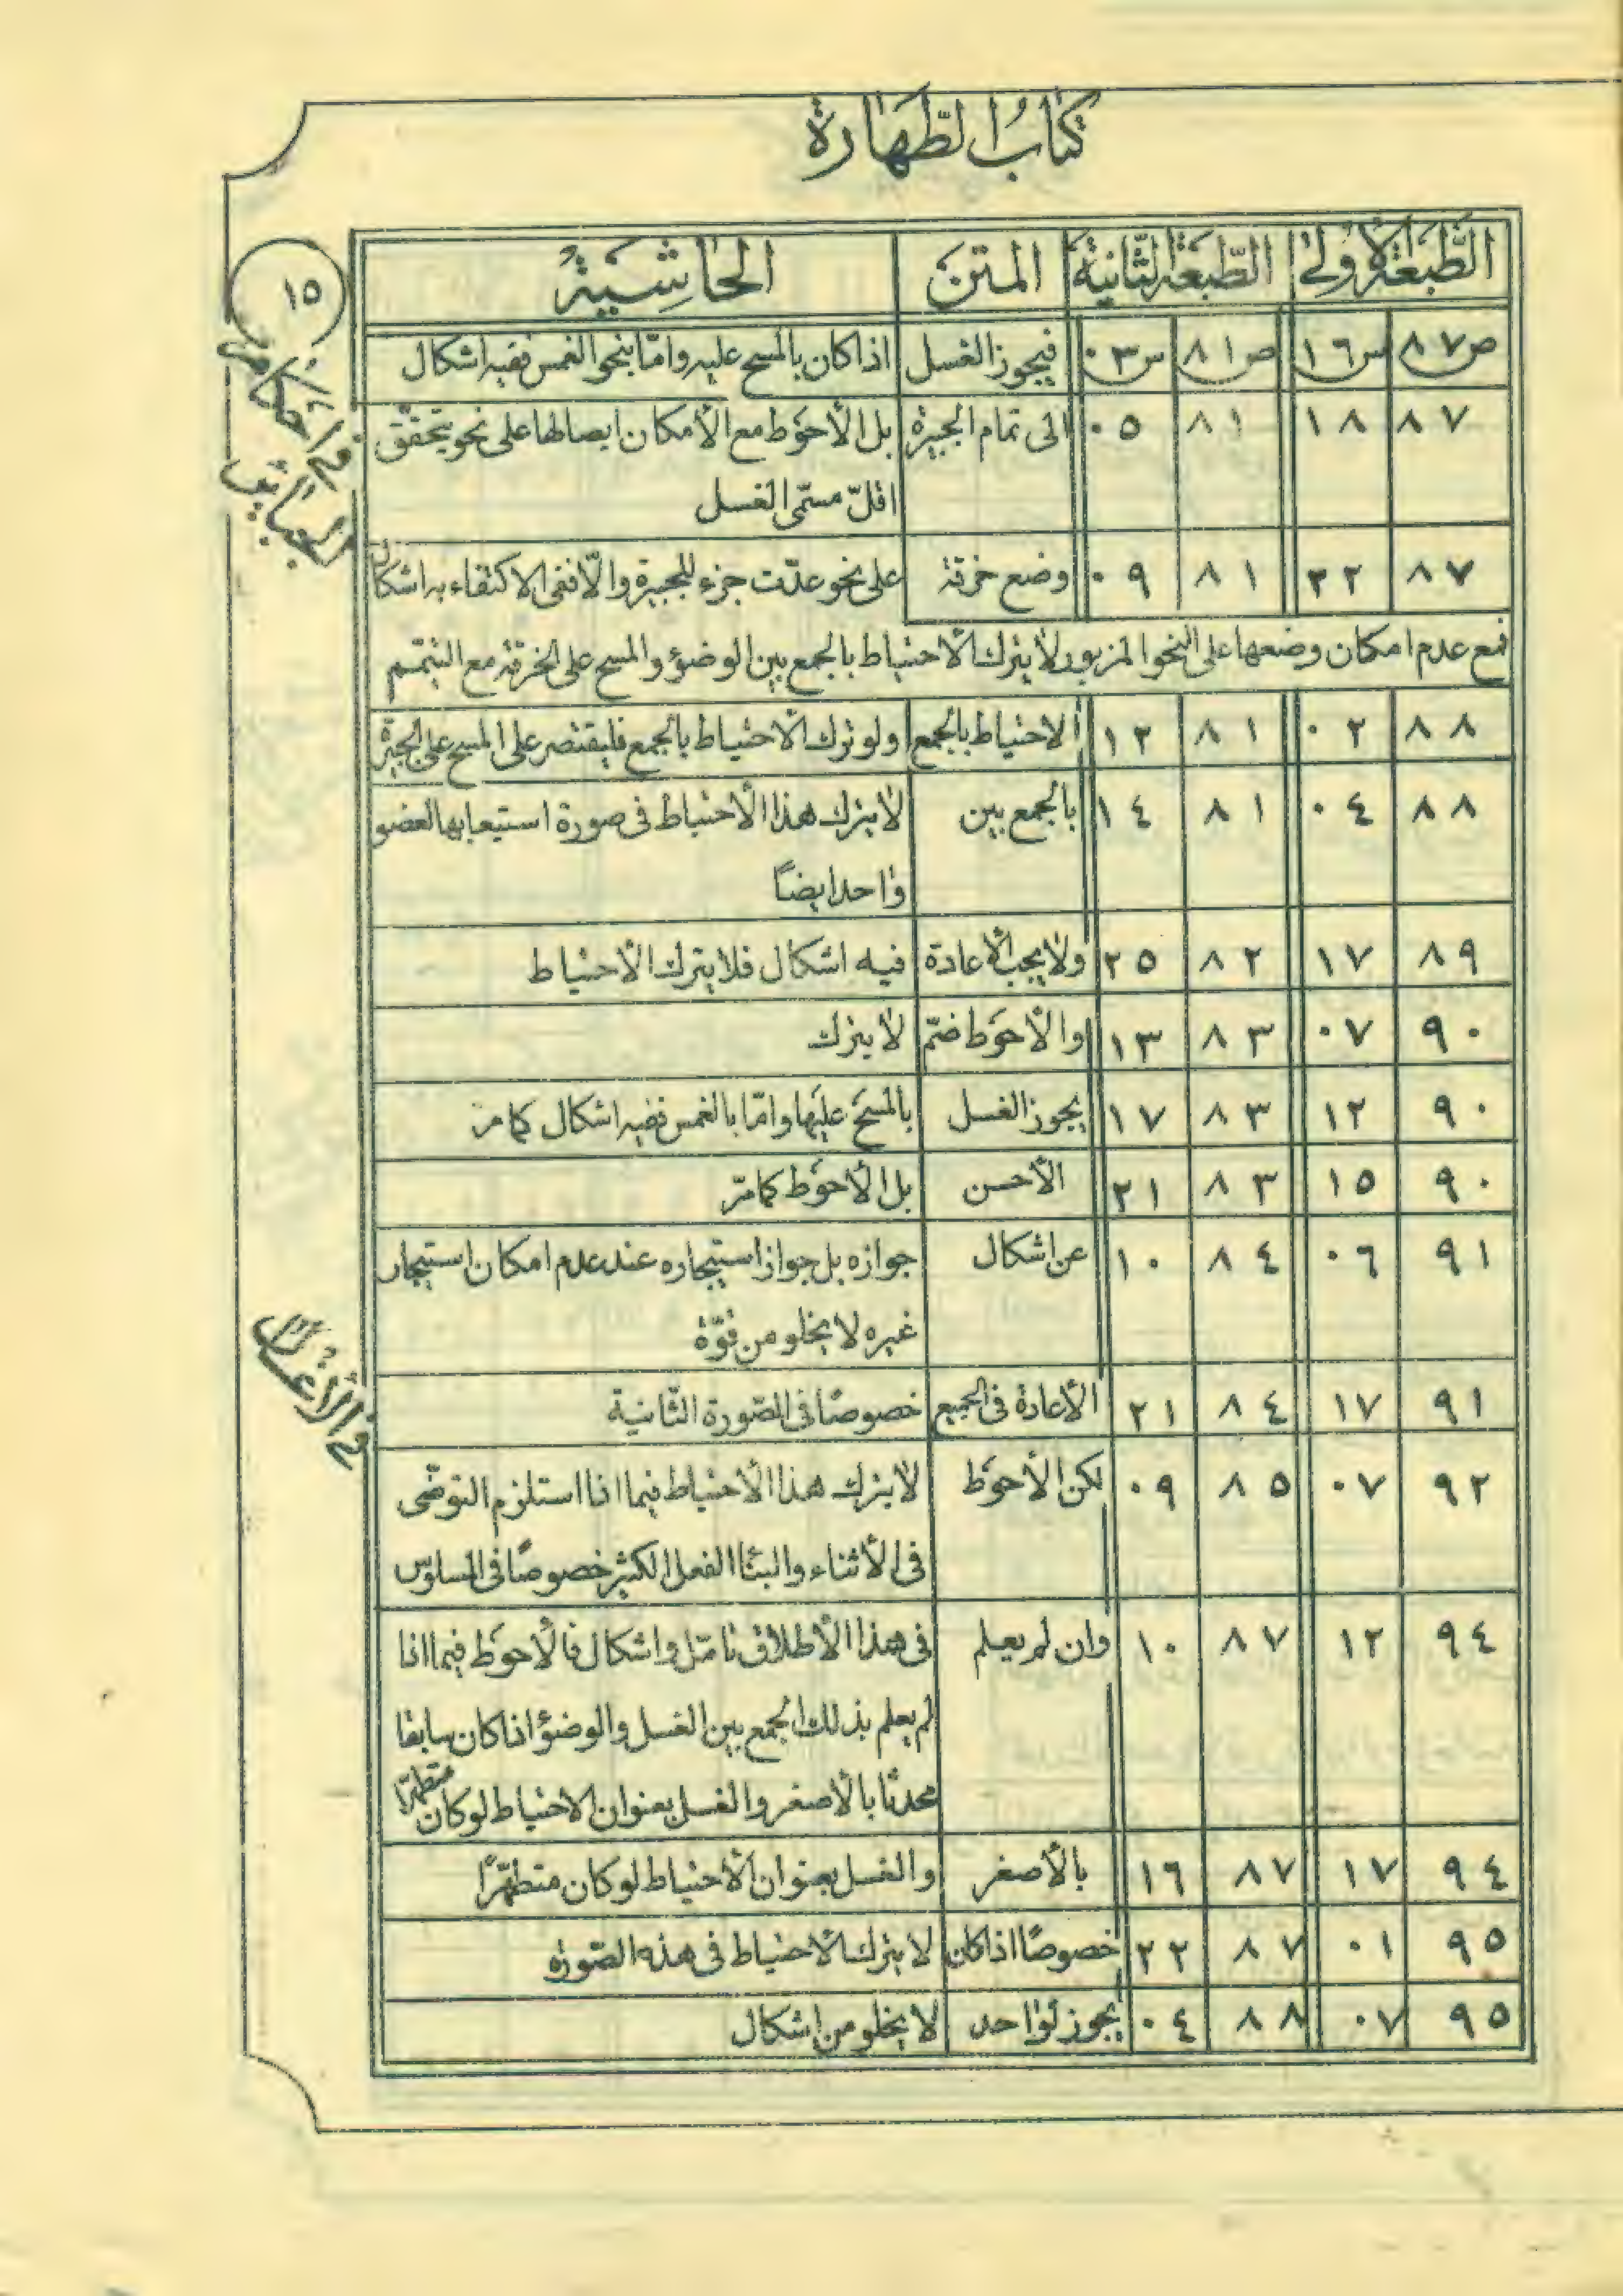 كتاب الطهارة
الطبعة الأولى الطبعة الثانية المتن الحاشية
١٥
في احكام
الجبائر
ص٨٧ س١٦ ص٨١ س٠٣ فيجوز الغسل اذا كان بالمسح عليه وامّا بنحو الغمس ففيه اشكال
٨٧ ١٨ ٨١ ٠٥ الى تمام الجبيرة بل الأحوط مع الأمكان ايصالها على نحو يتحقّق
اقلّ مسمّى الغسل
٨٧ ٢٢ ٨١ ٠٩ وضع خرقة على نحو عدّت جزء للجبيرة والّا ففى الاكتفاء به اشكال
فمع عدم امكان وضعها على النحو المزبور لا يترك الأحتياط بالجمع بين الوضوء والمسح على الخرقة مع التيمّم
٨٨ ٠٢ ٨١ ١٢ الاحتياط بالجمع ولو ترك الأحتياط بالجمع فليقتصر على المسح على الجبيرة
٨٨ ٠٤ ٨١ ١٤ بالجمع بين لا يترك هذا الأحتياط فى صورة استيعابها لعضو
واحد ايضاً
٨٩ ١٧ ٨٢ ٢٥ ولا يجب الأعادة فيه اشكال فلا يترك الأحتياط
٩٠ ٠٧ ٨٣ ١٣ والأحوط ضمّ لا يترك
٩٠ ١٢ ٨٣ ١٧ يجوز الغسل بالمسح عليها وامّا بالغمس ففيه اشكال كما مرّ
٩٠ ١٥ ٨٣ ٢١ الأحسن بل الأحوط كما مرّ
٩١ ٠٦ ٨٤ ١٠ عن اشكال جوازه بل جواز استيجاره عند عدم امكان استيجار
غيره لا يخلو من قوّة
٩١ ١٧ ٨٤ ٢١ الأعادة فى الجميع خصوصًا فى الصّورة الثّانية
في الأغسال
٩٢ ٠٧ ٨٥ ٠٩ لكن الأحوط لا يترك هذا الأحتياط فيما اذا استلزم التوضّى
فى الأثناء والبناء الفعل الكثير خصوصًا فى المسلوس
٩٤ ١٢ ٨٧ ١٠ وان لم يعلم فى هذا الأطلاق تامّل واشكال فالأحوط فيما اذا
لم يعلم بذلك الجمع بين الغسل والوضوء اذا كان سابقا
محدثا بالأصغر والغسل بعنوان الاحتياط لو كان متطهّرا
٩٤ ١٧ ٨٧ ١٦ بالأصغر والغسل بعنوان الأحتياط لو كان متطهّرًا
٩٥ ٠١ ٨٧ ٢٢ خصوصًا اذا كان لا يترك الأحتياط فى هذه الصّورة
٩٥ ٠٧ ٨٨ ٠٤ يجوز لواحد لا يخلو من اشكال